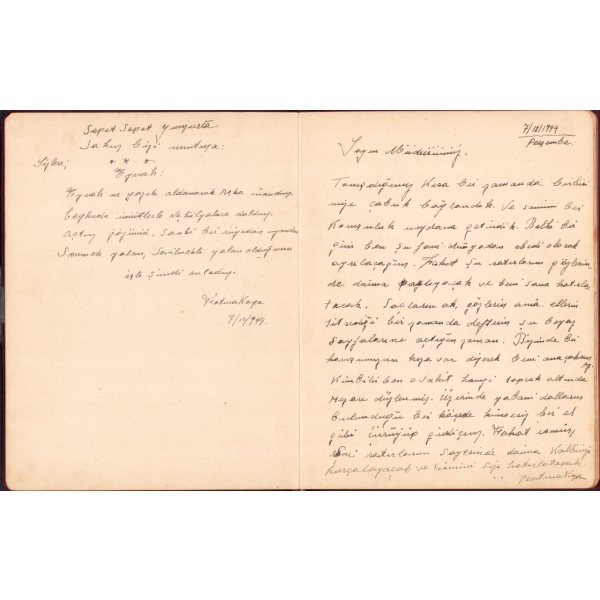 Sepet Sepet yumurta
Sakın bizi unutma:
Söylere;
* * *
Eyvah:
Eyvah ne yazık aldanarak Aşka inandım.
Boşbunda ümitlerle da hülyalara daldım.
Açtım gözümü. Sanki bir rüyadan uyandım
Sevmek yalan, Sevilmekte yalan olduğunu
işte şimdi anladım.
Fatma Kaya
7/12/944.
7/12/1944
Perşembe
Sayın Müdürümüz.
Tanışdığımız kısa bir zamanda birbiri
mize çabuk bağlandık. Ve samimi bir
Komşuluk meydana getirdik. Belki bir
gün ben şu fani dünyadan ebedi olarak
ayrılacağım. Fakat şu satırlarım gözlerin
de daima parlıyacak ve beni sana hatırla
tacak. Saçların ak, gözlerin amâ. ellerin
titrediği bir zamanda defterin şu beyaz
Sayfalarını açtığın zaman. Bizimde bir
komşumuzun kızı var diyerek beni anacaksın
Kimbilir ben o vakit hangi toprak altında
mezara düşlenmiş. Üzerinde yabani dalların
bulunduğu bir köşede kimsesiz bir et
gibi çürüyüp gidiyim. Fakat ismim,
satırlarım sayesinde daima Kalbinizi
kurcalayacak ve ismimi size hatırlatacak.
Fatma Kaya